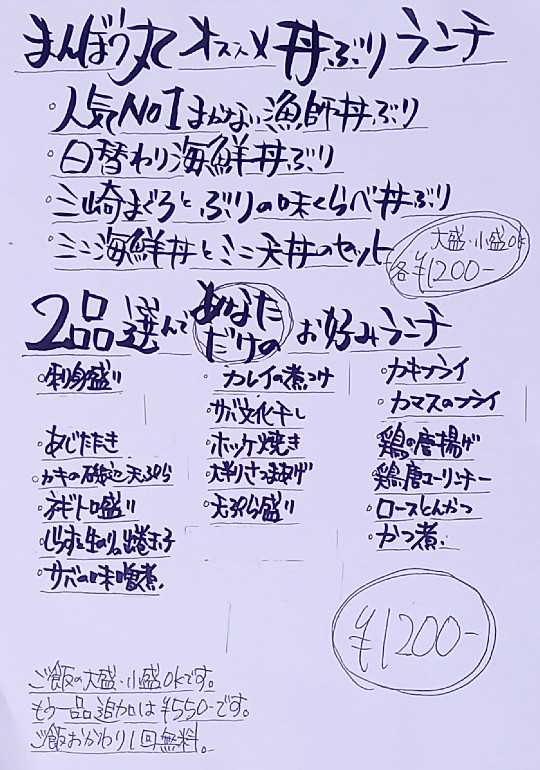 まんぼう丸 オススメ 丼ぶり ランチ
・人気NO1 まかない漁師丼ぶり
・日替わり海鮮丼ぶり
・三崎まぐろとぶりの味くらべ丼ぶり
・ミニ海鮮丼とミニ天丼のセット
大盛・小盛OK
各¥1200-
2品選んで あなただけの お好みランチ
・刺身盛り
・あじたたき
・カキの磯辺天ぷら
・ネギトロ盛り
・しらすと生のりの出巻玉子
・サバの味噌煮
・カレイの煮つけ
・サバ文化干し
・ホッケ焼き
・大判さつまあげ
・天ぷら盛り
・カキフライ
・カマスのフライ
・鶏の唐揚げ
・鶏唐ユーリンチー
・ロースとんかつ
・かつ煮
¥1200-
ご飯の大盛・小盛OKです。
もう一品追加は¥550-です。
ご飯おかわり1回無料。